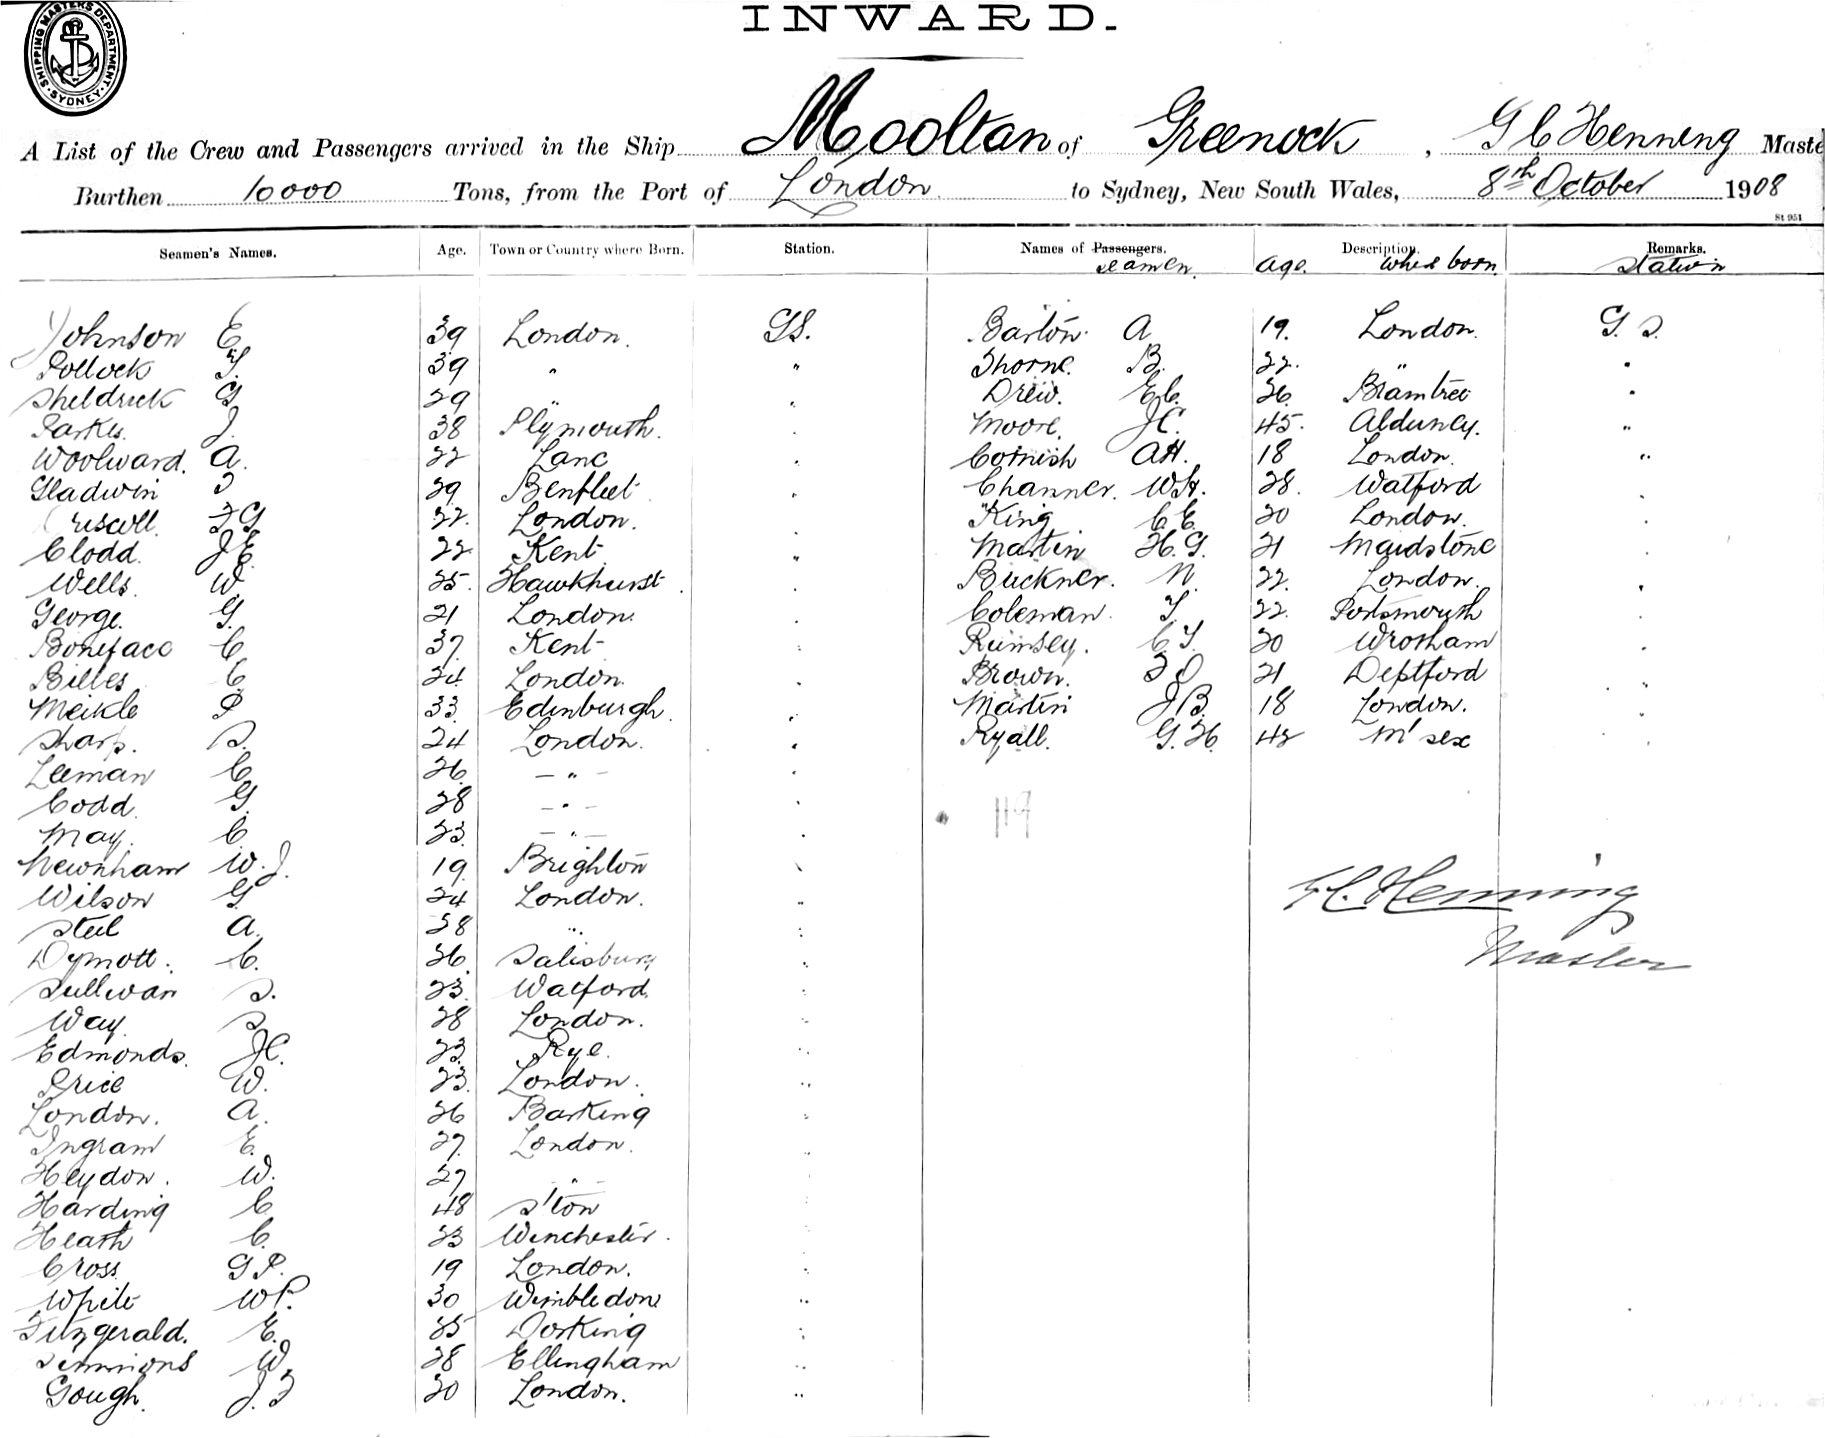 INWARD.
SHIPPING MASTERS DEPARTMENT SYDNEY
A List of the Crew and Passengers arrived in the Ship Mooltan of Greenock, G C Henning Maste
Burthen 10000 Tons, from the Port of London to Sydney, New South Wales, 8th October 1908
St 951
Seamen's Names. Age. Town or Country where Born. Station. Names of Passengers. Description. Remarks.
seamen. age. where born. station
Johnson E 39 London. GS. Barton A 19. London. G. S.
Pollock T. 39 " " Thorne. B. 22. " "
Sheldrick G 29 " " Drew. E C. 26. Braintree "
Parkes. J. 38 Plymouth. " Moore. J C. 45. Alduncy. "
Woolward. A. 22 Lanc " Cornish A H. 18 London. "
Gladwin 29 Benfleet " Channer. W H. 28. Watford "
F G 22. London. " King C E. 20 London. "
Clodd. J E. 22 Kent " Martin H. G. 21 Maidstone "
Wells. W. 25. Hawkhurst " Buckner. N. 22. London. "
George. G. 21 London. " Coleman. T. 22. Portsmouth "
Boniface C. 37. Kent " Rumsey. C T. 20 Wrotham "
Billes C. 24 London. " Brown. 21 Deptford "
Meikle P 33. Edinburgh. " Martin J B. 18 London. "
Sharp. S. 24 London. " Ryall. G. H. 42 M'sex "
Leeman C. 26. — " —
Codd. G. 28 — " — 119
May. C. 23. — " —
Newnham W. J. 19. Brighton "
Wilson G. 24 London. " G C. Henning
Steel A. 28 " "
Dymott. C. 26. Salisbury " Master
Sullivan S. 23. Watford. "
Way. S. 28 London. "
Edmonds. J C. 23. Rye. "
Price W. 23. London. "
London. A. 26 Barking "
Ingram E. 27. London. "
Heydon. W. 27 " "
Harding C 48 S'ton "
Heath C. 23 Winchester. "
Cross. G P. 19 London. "
White W P. 30 Wimbledon "
Fitzgerald. E. 25 Dorking "
Simmons W. 28 Ellingham "
Gough. J. F 20 London. "